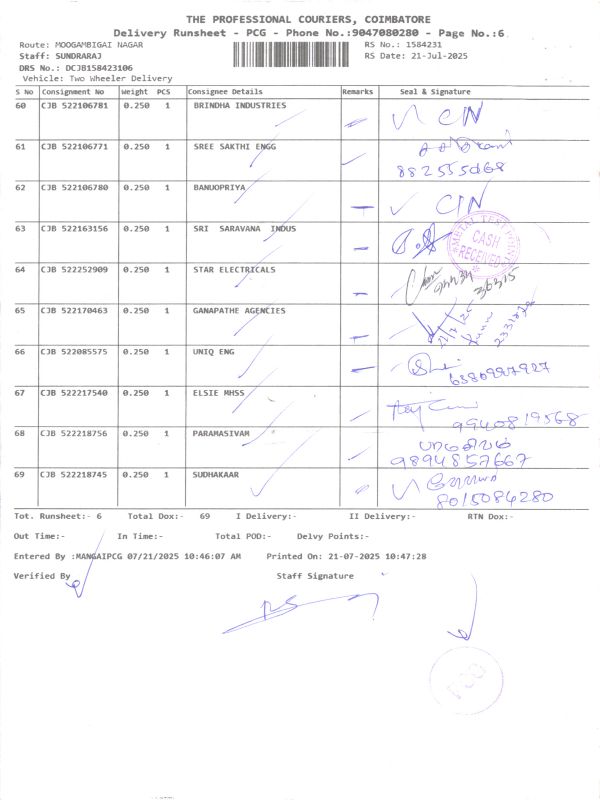 THE PROFESSIONAL COURIERS, COIMBATORE
Delivery Runsheet - PCG - Phone No.:9047080280 - Page No.:6
Route: MOOGAMBIGAI NAGAR RS No.: 1584231
Staff: SUNDRARAJ RS Date: 21-Jul-2025
DRS No.: DCJB158423106
Vehicle: Two Wheeler Delivery
S No Consignment No Weight PCS Consignee Details Remarks Seal & Signature
60 CJB 522106781 0.250 1 BRINDHA INDUSTRIES
61 CJB 522106771 0.250 1 SREE SAKTHI ENGG
62 CJB 522106780 0.250 1 BANUOPRIYA
63 CJB 522163156 0.250 1 SRI SARAVANA INDUS
CASH
RECEIVED
64 CJB 522252909 0.250 1 STAR ELECTRICALS
65 CJB 522170463 0.250 1 GANAPATHE AGENCIES
66 CJB 522085575 0.250 1 UNIQ ENG
67 CJB 522217540 0.250 1 ELSIE MHSS
9940819568
68 CJB 522218756 0.250 1 PARAMASIVAM
9894857667
69 CJB 522218745 0.250 1 SUDHAKAAR
8015084280
Tot. Runsheet:- 6 Total Dox:- 69 I Delivery:- II Delivery:- RTN Dox:-
Out Time:- In Time:- Total POD:- Delvy Points:-
Entered By :MANGAIPCG 07/21/2025 10:46:07 AM Printed On: 21-07-2025 10:47:28
Verified By Staff Signature